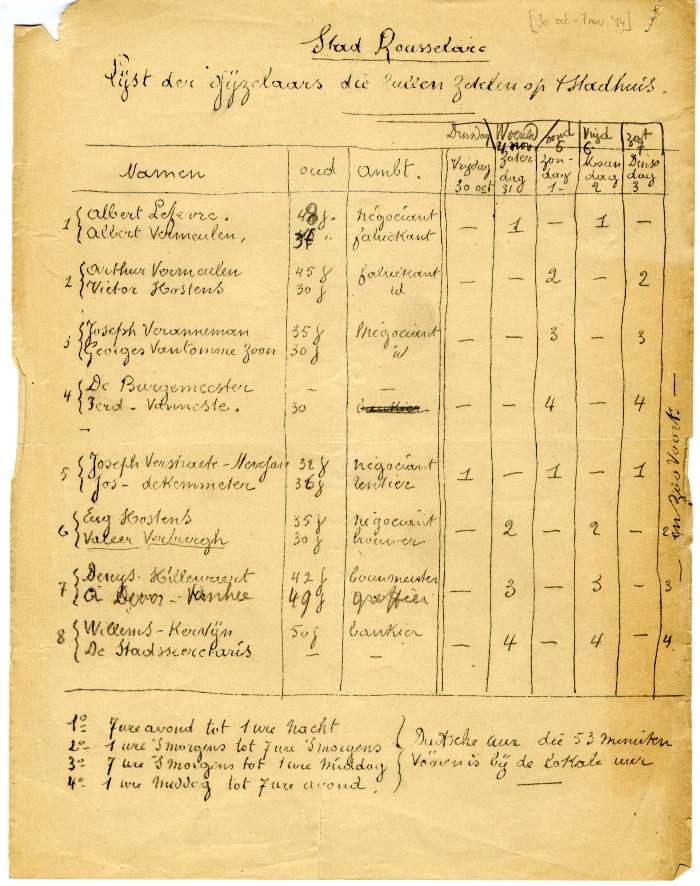 [30 oct - 7 nov. '14]
Stad Rousselare
Lijst der Gijzelaars die zullen zetelen op 't Stadhuis.
Dinsdag Woensd Dond Vrijd Zat
4 nov 5 6 7
Namen oud ambt. Vrijdag 30 oct Zaterdag 31 Zondag 1- Maandag 2 Dinsdag 3
1 { Albert Lefevre. 48 j. négociant — 1 — 1 —
Albert Vermeulen, 37 " fabriekant
2 { Arthur Vermeulen 45 j fabriekant — — 2 — 2
Victor Hostens 30 j id
3 { Joseph Veranneman 35 j négociant — — 3 — 3
Georges Vantomme Zoon 30 j id
4 { De Burgemeester — —
Ferd. Vanneste. 30 bankier — — 4 — 4
—
5 { Joseph Verstraete-Nevejan 32 j négociant 1 — 1 — 1
Jos- deKemmeter 36 j rentier
6 { Eug Hostens 35 j négociant — 2 — 2 — 2
Valeer Verburgh 30 j brouwer
7 { Denys- Hillewaert 42 j bouwmeester — 3 — 3 — 3
A Devos-Vanhee 49 j greffier
8 { Willems-Kervijn 50 j bankier — 4 — 4 — 4
De Stadssecretaris — —
— en zoo voort. —
1° 7 ure avond tot 1 ure nacht
2° 1 ure 's morgens tot 7 ure 's morgens { Duitsche uur die 53 minuten
3° 7 ure 's morgens tot 1 ure middag { vooren is bij de lokale uur
4° 1 ure middag tot 7 ure avond.